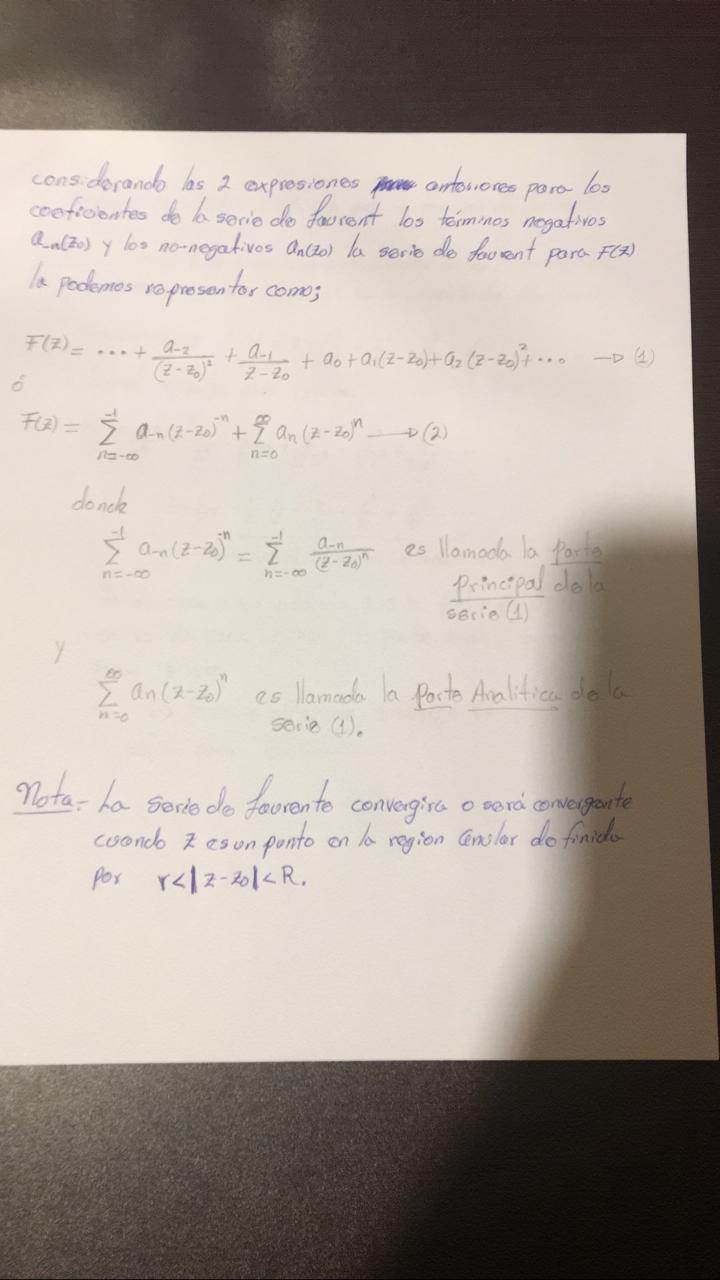 considerando las 2 expresiones anteriores para los
coeficientes de la serie de Laurent los términos negativos
a₋n(z₀) y los no-negativos an(z₀) la serie de Laurent para F(z)
la podemos representar como;
F(z) = ··· + a₋₂/(z-z₀)² + a₋₁/z-z₀ + a₀+a₁(z-z₀)+a₂(z-z₀)²+··· → (1)
ó
F(z) = Σ_{n=-∞}^{-1} a₋n(z-z₀)⁻ⁿ + Σ_{n=0}^{∞} an(z-z₀)ⁿ → (2)
donde
Σ_{n=-∞}^{-1} a₋n(z-z₀)⁻ⁿ = Σ_{n=-∞}^{-1} a₋n/(z-z₀)ⁿ es llamada la parte
principal de la
serie (1)
y
Σ_{n=0}^{∞} an(z-z₀)ⁿ es llamada la parte Analítica de la
serie (1).
Nota.- La serie de Laurente convergira o será convergente
cuando z es un punto en la region Anular definida
por r<|z-z₀|<R.